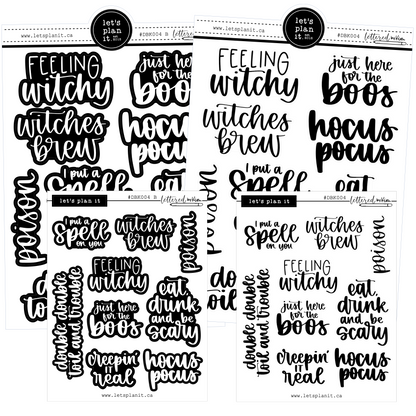 let's
plan
it.
#DBK004 B
lettered mom
www.letsplanit.ca
FEELING
witchy
just here
for the
boos
witches
brew
hocus
pocus
I put a
Spell
eat,
poison
let's
plan
it.
#DBK004
lettered mom
www.letsplanit.ca
FEELING
witchy
just here
for the
boos
witches
brew
hocus
pocus
I put a
Spell
eat,
poison
let's plan it
#DBK004 B
lettered mom
I put a
Spell
on you
witches
brew
poison
FEELING
witchy
double double
toil and trouble
just here
for the
boos
eat,
drink
and be
scary
creepin'
IT
real
hocus
pocus
www.letsplanit.ca
let's plan it
#DBK004
lettered mom
I put a
Spell
on you
witches
brew
poison
FEELING
witchy
double double
toil and trouble
just here
for the
boos
eat,
drink
and be
scary
creepin'
IT
real
hocus
pocus
www.letsplanit.ca